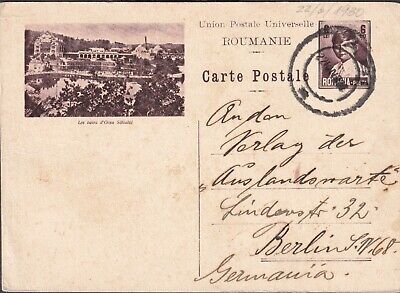 22/6/1930
Union Postale Universelle
ROUMANIE
Carte Postale
6 6
ROMANIA
Les bains d'Ocna Sibiului
An den
Verlag der
„Auslandswarte"
Lindenstr. 32.
Berlin S.W68.
Germania.